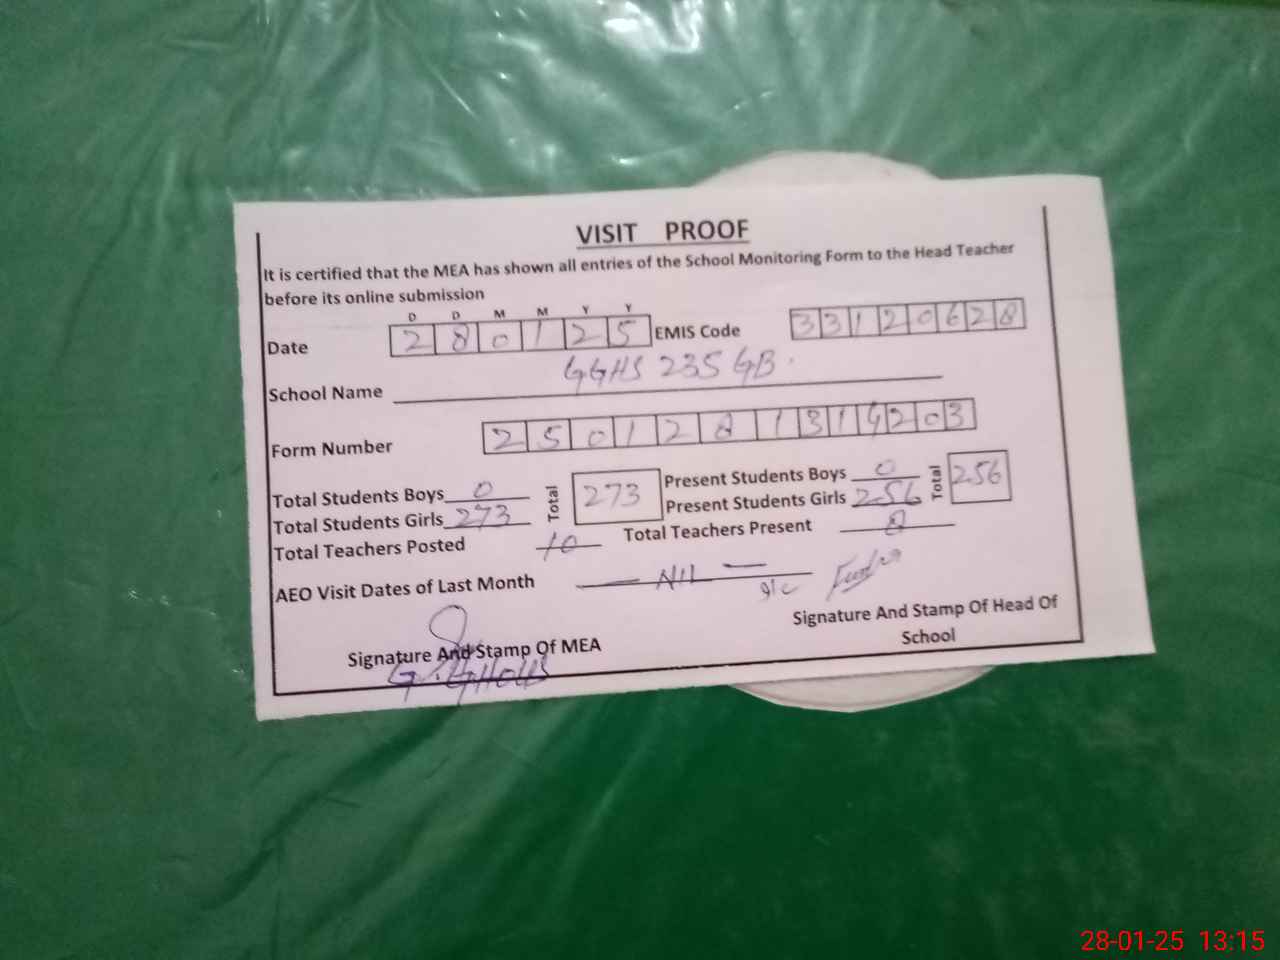 VISIT PROOF
It is certified that the MEA has shown all entries of the School Monitoring Form to the Head Teacher
before its online submission
D D M M Y Y
Date 2 8 0 1 2 5 EMIS Code 3 3 1 2 0 6 2 8
School Name GGHS 235 GB.
Form Number 2 5 0 1 2 8 1 3 1 4 2 0 3
Total Students Boys 0 Total 273 Present Students Boys 0 Total 256
Total Students Girls 273 Present Students Girls 256
Total Teachers Posted 10 Total Teachers Present 8
AEO Visit Dates of Last Month — NIL —
Signature And Stamp Of MEA
Signature And Stamp Of Head Of
School
28-01-25 13:15